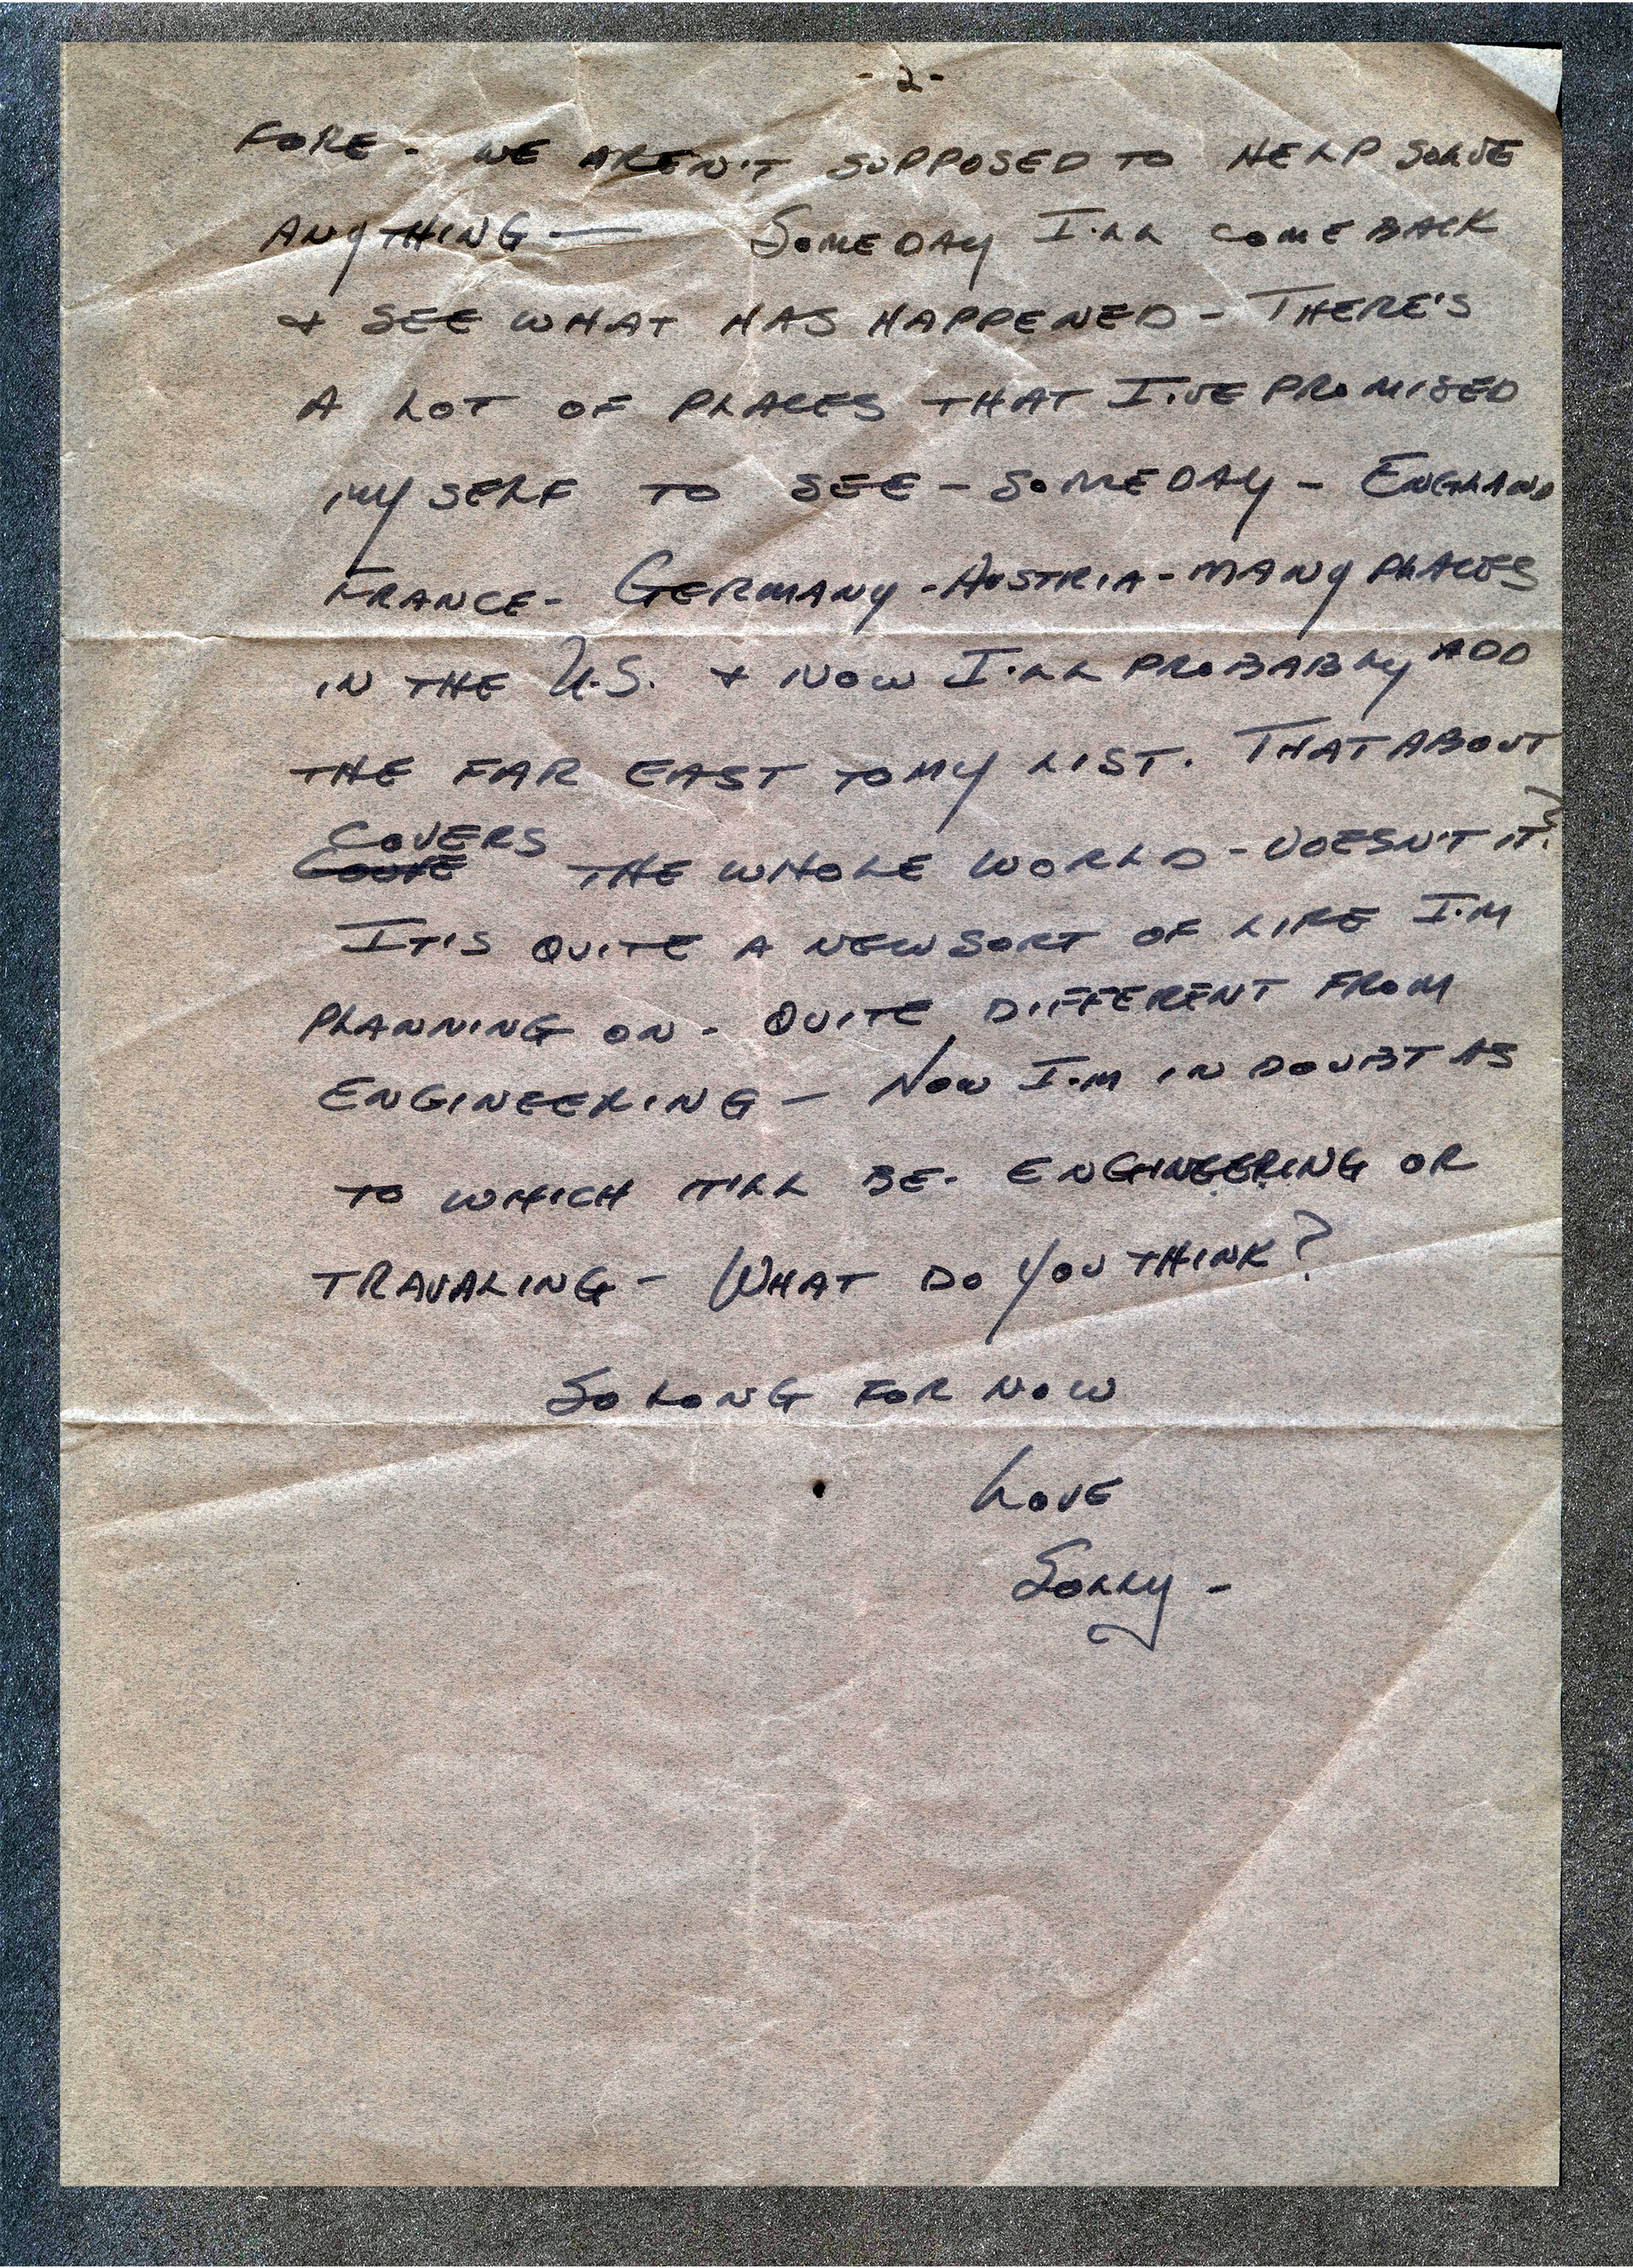 - 2 -
FORE - WE AREN'T SUPPOSED TO HELP SOLVE
ANYTHING — SOMEDAY I'LL COME BACK
& SEE WHAT HAS HAPPENED - THERE'S
A LOT OF PLACES THAT I'VE PROMISED
MYSELF TO SEE - SOMEDAY - ENGLAND
FRANCE - GERMANY - AUSTRIA - MANY PLACES
IN THE U.S. & NOW I'LL PROBABLY ADD
THE FAR EAST TO MY LIST. THAT ABOUT
COVERS THE WHOLE WORLD - DOESN'T IT?
IT'S QUITE A NEW SORT OF LIFE I'M
PLANNING ON - QUITE DIFFERENT FROM
ENGINEERING - NOW I'M IN DOUBT AS
TO WHICH IT'LL BE - ENGINEERING OR
TRAVALING - WHAT DO YOU THINK?
SO LONG FOR NOW
LOVE
SOLLY -